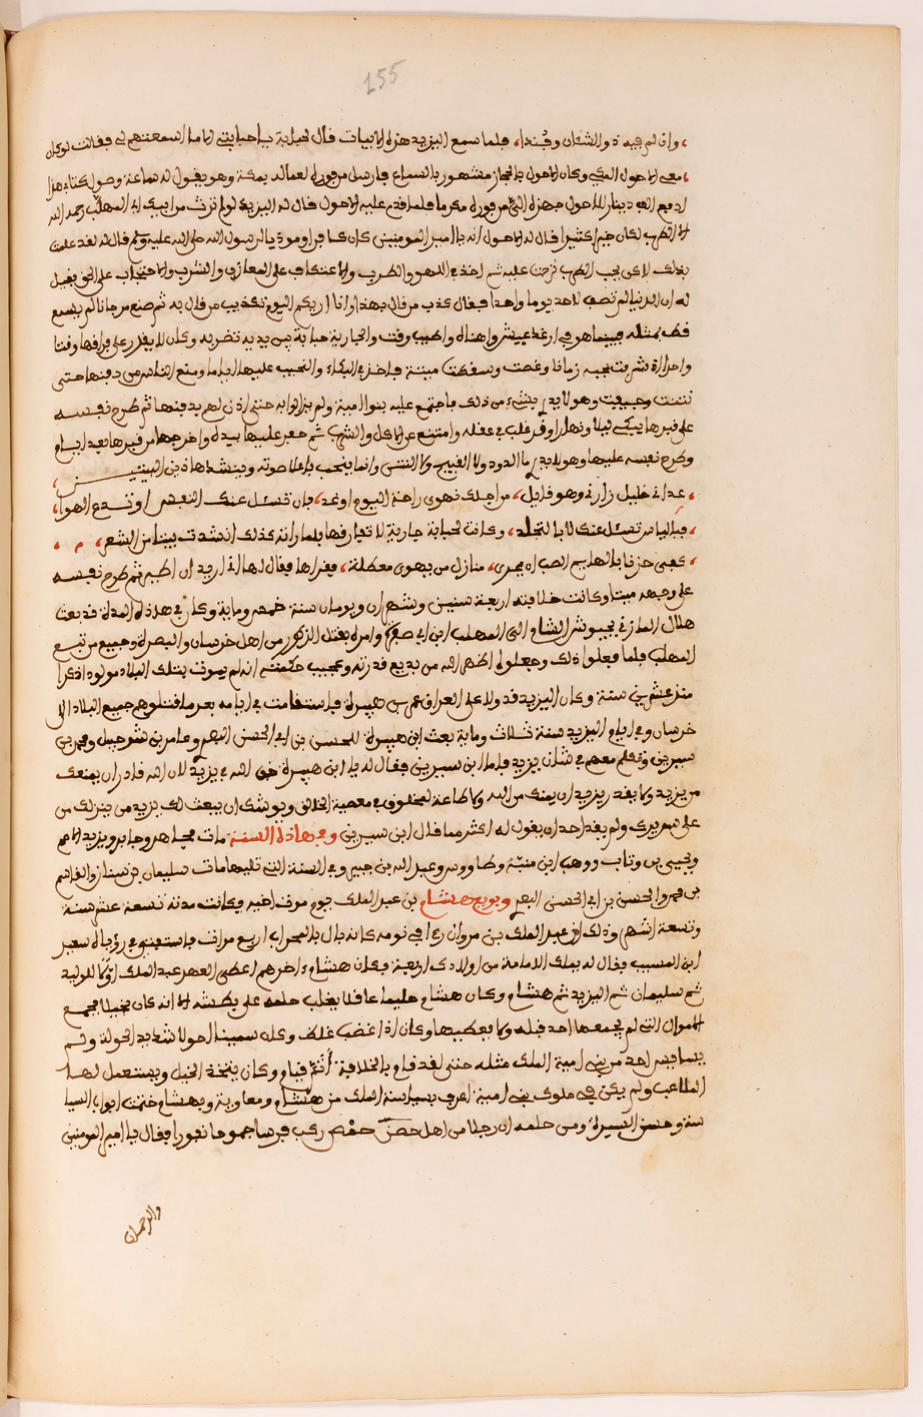 155
وان لام فيه ذو الشنان وفندا، فلما سمع اليزيد هذه الابيات قال لحبابة يا حبابتي اما ما اسمعتهم لي فقالت لو كان
معي الاحول المكي وكان الاحول بالحجاز مشهور بالسماع فارسل من فوره لعماله بمكة وهو يقول له ساعة وصول كتابه هذا
ادفع الف دينار للاحول جهزه الي من فوره مكرما فلما قدم عليه الاحول قال له اليزيد لو لم ترث من ابيك ابن المهلب رحمه الله
الا الكرب لكان خيرا كثيرا فقال له الاحول انه يا امير المومنين كان كافرا وموذيا لرسول الله صلى الله عليه وسلم فقال له لقد علمت
بذلك لاكن بحب الكرب ترحمت عليه ثم اخذ في اللهو والطرب والاعتكاف على المعازف والشرب والاحتجاب على الحق فقيل
له ان الدنيا لم تصف لاحد يوما واحدا فقال كذب من قال بهذا وانا اريكم اليوم تكذيب من قال به ثم صنع مهرجانا لم يسمع
قط بمثله فبينما هو في ارغد عيش واهناه واطيب وقت والجارية حبابة بين يديه تضربه وكان لا يقدر على فراقها وقتا
واحدا اذ شرقت بحبه زمانا وغصت وسقطت ميتة فاخذ في البكاء والنحيب عليها اياما ومنع الناس من دفنها حتى
نتنت وجيفت وهو لا يدري بشيء من ذلك فاجتمع عليه بنوا امية ولم يزالوا به حتى اذن لهم بدفنها ثم طرح نفسه
على قبرها يبكي ليلا ونهارا وقد غلب في عقله وامتنع عن الاكل والشرب ثم حفر عليها بيده واخرجها من قبرها بعد ايام
وطرح نفسه عليها وهو لا يدري ما الدود ولا القبيح ولا النتن وانما ينحب باعلا صوته وينشد هاذين البيتين
غدا في خليل زارني وهو قايل، من اجلك نهوى راحة اليوم او غد، فان تسئل عنك النفس او تدع الهوا،
فبالياس تسئل عنك لا بالتجلد، وكانت لحبابة جارية لا تفارقها فلما راته كذلك انشدت بيتا من الشعر،
كفى حزنا بالهايم الصب ان يرى، منازل من يهوى معطلة، فقراها فقال لها اني اريد ان اطير ثم طرح نفسه
على وجهه ميتا وكانت خلافته اربعة سنين وشهران ويومان سنة خمسه وماية وكان في هذه المدة قد بعث
هلال المازني بجيوش الشام الى المهلب ابن ابي صفرة وامره بقتل الذكور من اهل خرسان والبصرة وجميع من تبع
المهلب فلما فعلوا ذلك وجعلوا اظهر الله من بديع قدرته وعجيب حكمته انه لم يموت بتلك البلاد مولود ذكرا
منذ عشرين سنة وكان اليزيد قد ولا على العراق عمر بن هبيرة فاستقامت في ايامه بعد ما قتلوهم جميع البلاد الا
خرسان وفي ايام اليزيد سنة ثلاث وماية بعث ابن هبيرة للحسن بن ابي الحسن البصري وعامر بن شرحبيل ومحمد بن
سيرين وتكلم معهم في شان يزيد فلما ابن سيرين فقال له يا ابن هبيرة خف الله في يزيد لان الله قادر ان يمنعك
من يزيد وما يقدر يزيد ان يمنك من الله ولا طاعة لمخلوق في معصية الخالق ويوشك ان يبعث لك يزيد من ينزلك من
على سريرك ولم يقدر احد ان يقول له اكثر مما قال ابن سيرين وفي هاذه السنة مات مجاهد وجابر ويزيد الاصم
ويحيى بن وثاب ووهب ابن منبه وطاووس وعبد الله بن جبير وفي السنة التي تليها مات سليمان بن يسار والقاسم
بن محمد والحسن بن ابي الحسن البصري وبويع هشام بن عبد الملك يوم موت اخيه فكانت مدته تسعة عشر سنة
وتسعة اشهر وذلك ان عبد الملك بن مروان رءا في نومه كانه بال بالمحراب اربع مرات فاستفتى في رؤياه سعيد
ابن المسيب فقال له يملك الامامة من اولادك اربعة فكان هشام ءاخرهم اعطى العهد عبد الملك اولا للوليد
ثم سليمان ثم اليزيد ثم هشام وكان هشام حليما عاقلا يغلب حلمه على بطشه الا انه كان بخيلا مجمع
الاموال التي لم يجمعها احد قبله ولا يعطيها وكان اذا غضب غلظ وعله سمينا احولا شديد الحولة ولم
يساير احد من بني امية الملك مثله حتى لقد قام بالخلافة اتم قيام وكان يتخذ الخيل ويستعمل لها
الملاعب ولم يكن في ملوك بني امية اعرف بسياسة الملك من هشام ومعاوية وبهشام ختمت ابواب السيا
سة وحسن السيرة ومن حلمه ان رجلا من اهل حمص ركب فرسا جموحا نفورا فقال يا امير المومنين
والرحمان